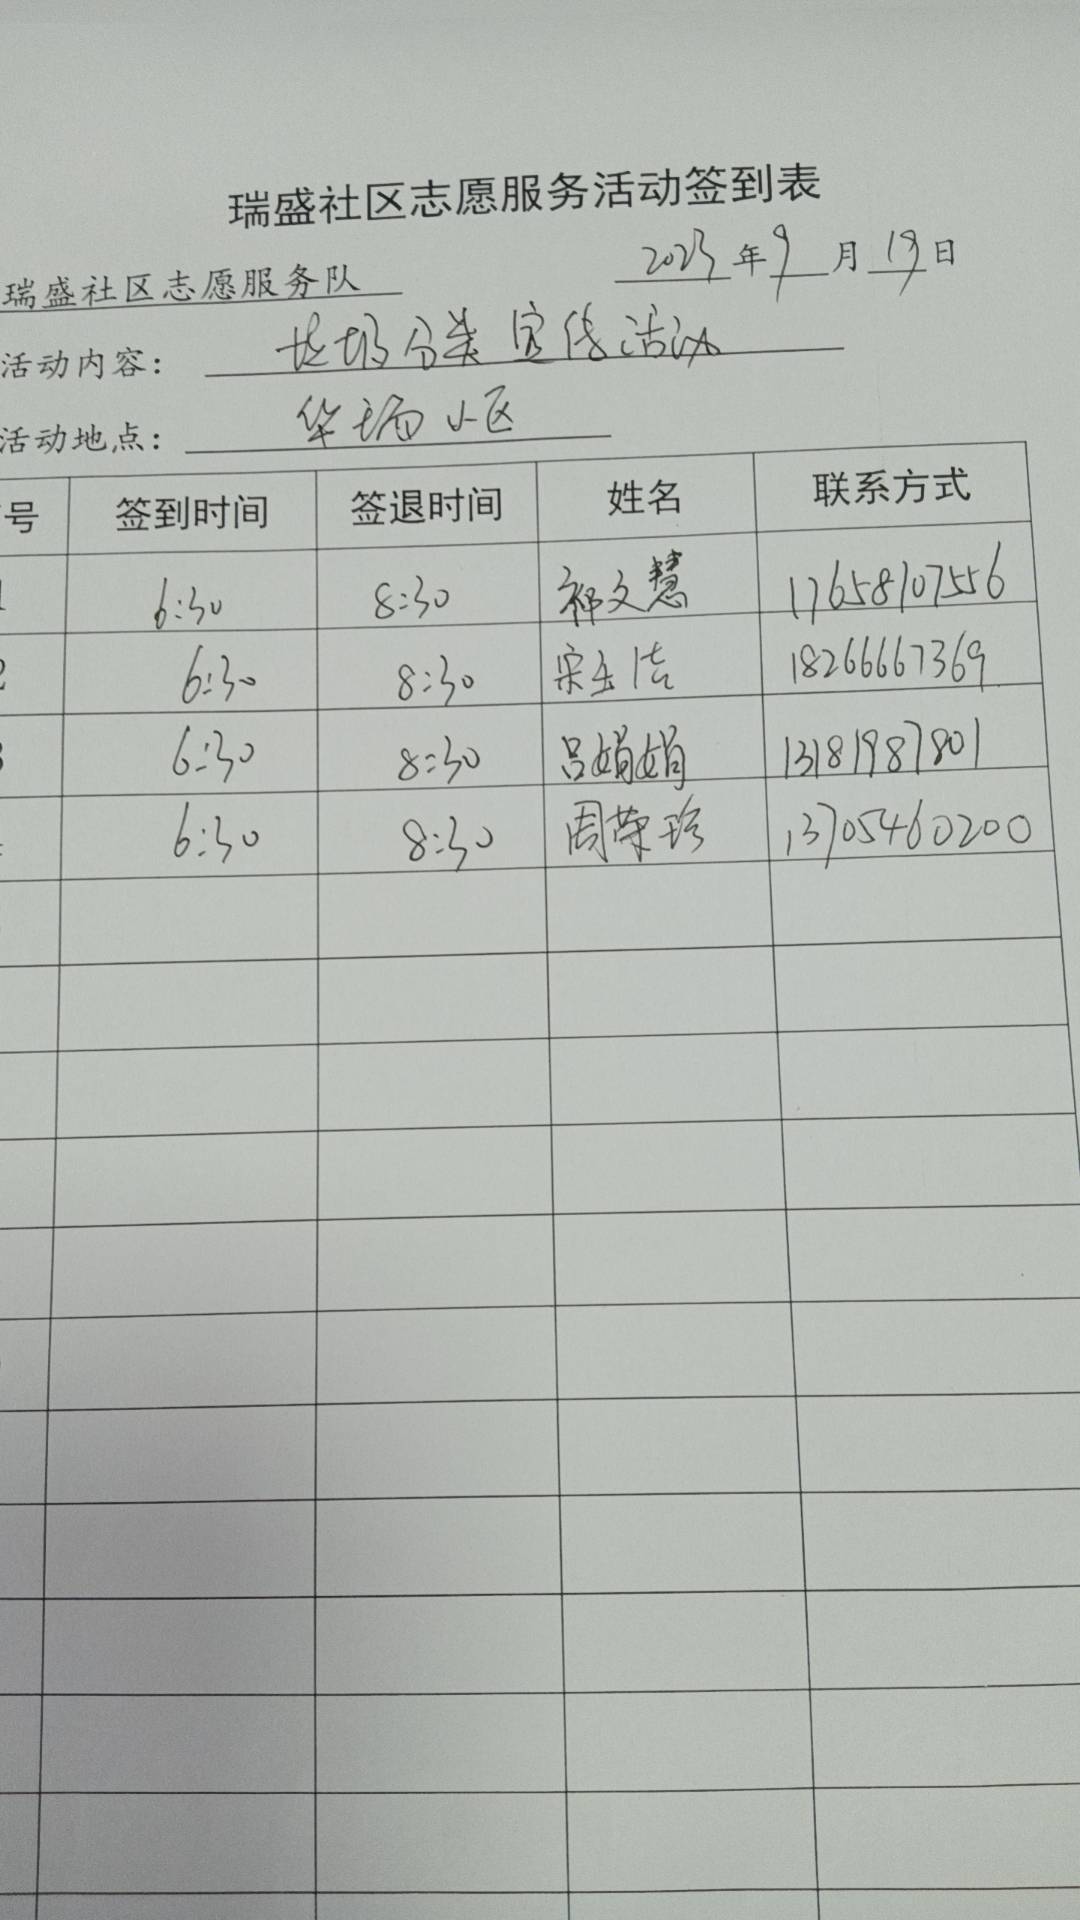 瑞盛社区志愿服务活动签到表
瑞盛社区志愿服务队 2023年9月19日
活动内容： 垃圾分类宣传活动
活动地点： 华瑞小区
号 签到时间 签退时间 姓名 联系方式
1 6:30 8:30 祁文慧 17658107556
2 6:30 8:30 宋玉洁 18266667369
3 6:30 8:30 吕娟娟 13181987801
6:30 8:30 周荣珍 13705460200